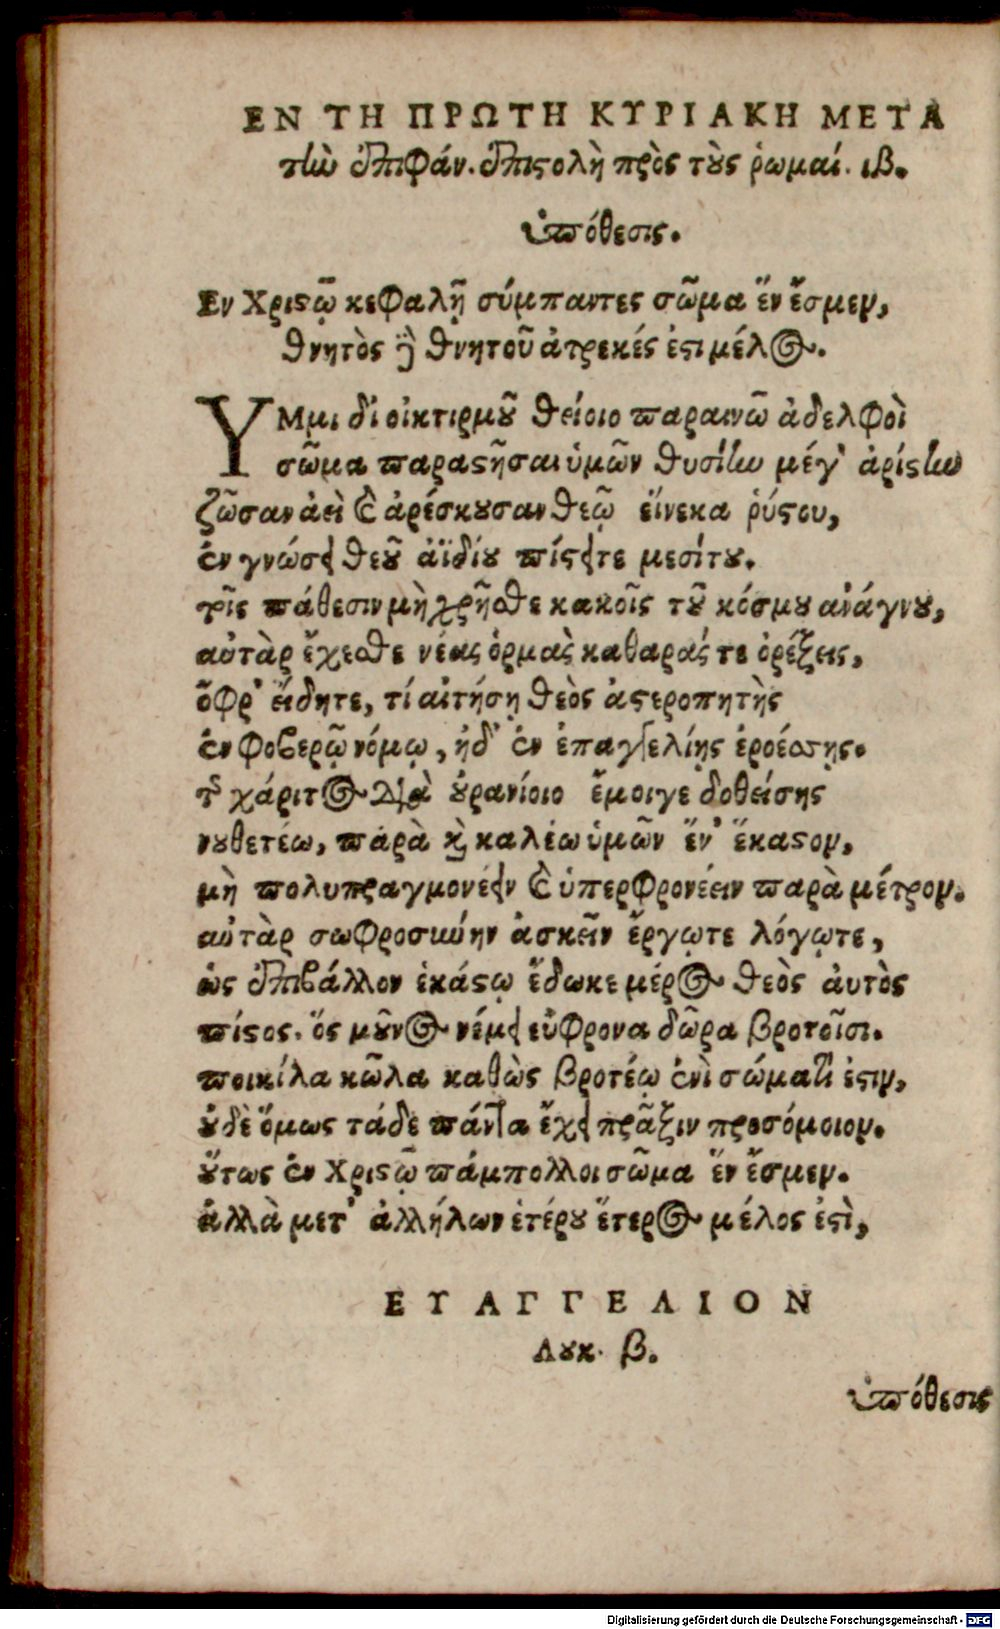 ΕΝ ΤΗ ΠΡΩΤΗ ΚΥΡΙΑΚΗ ΜΕΤΑ
τὴν ἐπιφάν. ἐπιστολὴ πρὸς τοὺς ῥωμαί. ιβ.
ὑπόθεσις.
Εν Χριστῷ κεφαλῇ σύμπαντες σῶμα ἕν ἔσμεν,
θνητὸς δὲ θνητοῦ ἀτρεκές ἐστι μέλος.
ΥΜμι δι οἰκτιρμοῦ θείοιο παραινῶ ἀδελφοὶ
σῶμα παραστῆσαι ὑμῶν θυσίην μέγ' ἀρίστην
ζῶσαν ἀεὶ καὶ ἀρέσκουσαν θεῷ εἵνεκα ῥύστου,
ἐν γνώσει θεοῦ ἀϊδίου πίστει τε μεσίτου.
τοῖς πάθεσιν μὴ χρῆσθε κακοῖς τοῦ κόσμου ἀνάγνου,
αὐτὰρ ἔχεσθε νέας ὁρμὰς καθαράς τε ὀρέξεις,
ὄφρ' εἴδητε, τί αἰτήσῃ θεὸς ἀστεροπητὴς
ἐν φοβερῷ νόμῳ, ἠδ' ἐν ἐπαγγελίῃς ἐροέσσῃς.
τῆς χάριτος διὰ οὐρανίοιο ἔμοιγε δοθείσης
νουθετέω, παρὰ καὶ καλέω ὑμῶν ἕν' ἕκαστον,
μὴ πολυπραγμονέειν καὶ ὑπερφρονέειν παρὰ μέτρον.
αὐτὰρ σωφροσύνην ἀσκεῖν ἔργῳτε λόγῳτε,
ὡς ἐπιβάλλον ἑκάστῳ ἔδωκε μέρος θεὸς ἀυτὸς
πίστος. ὅς μοῦνος νέμει εὔφρονα δῶρα βροτοῖσι.
ποικίλα κῶλα καθὼς βροτέῳ ἐνὶ σώματι ἐστιν,
οὐδὲ ὅμως τάδε πάντα ἔχει πρᾶξιν προσόμοιον.
οὕτως ἐν Χριστῷ πάμπολλοι σῶμα ἕν ἔσμεν.
ἀλλὰ μετ' ἀλλήλων ἑτέρου ἕτερος μέλος ἐστὶ,
ΕΥΑΓΓΕΛΙΟΝ
Λουκ. β.
ὑπόθεσις
Digitalisierung gefördert durch die Deutsche Forschungsgemeinschaft - DFG